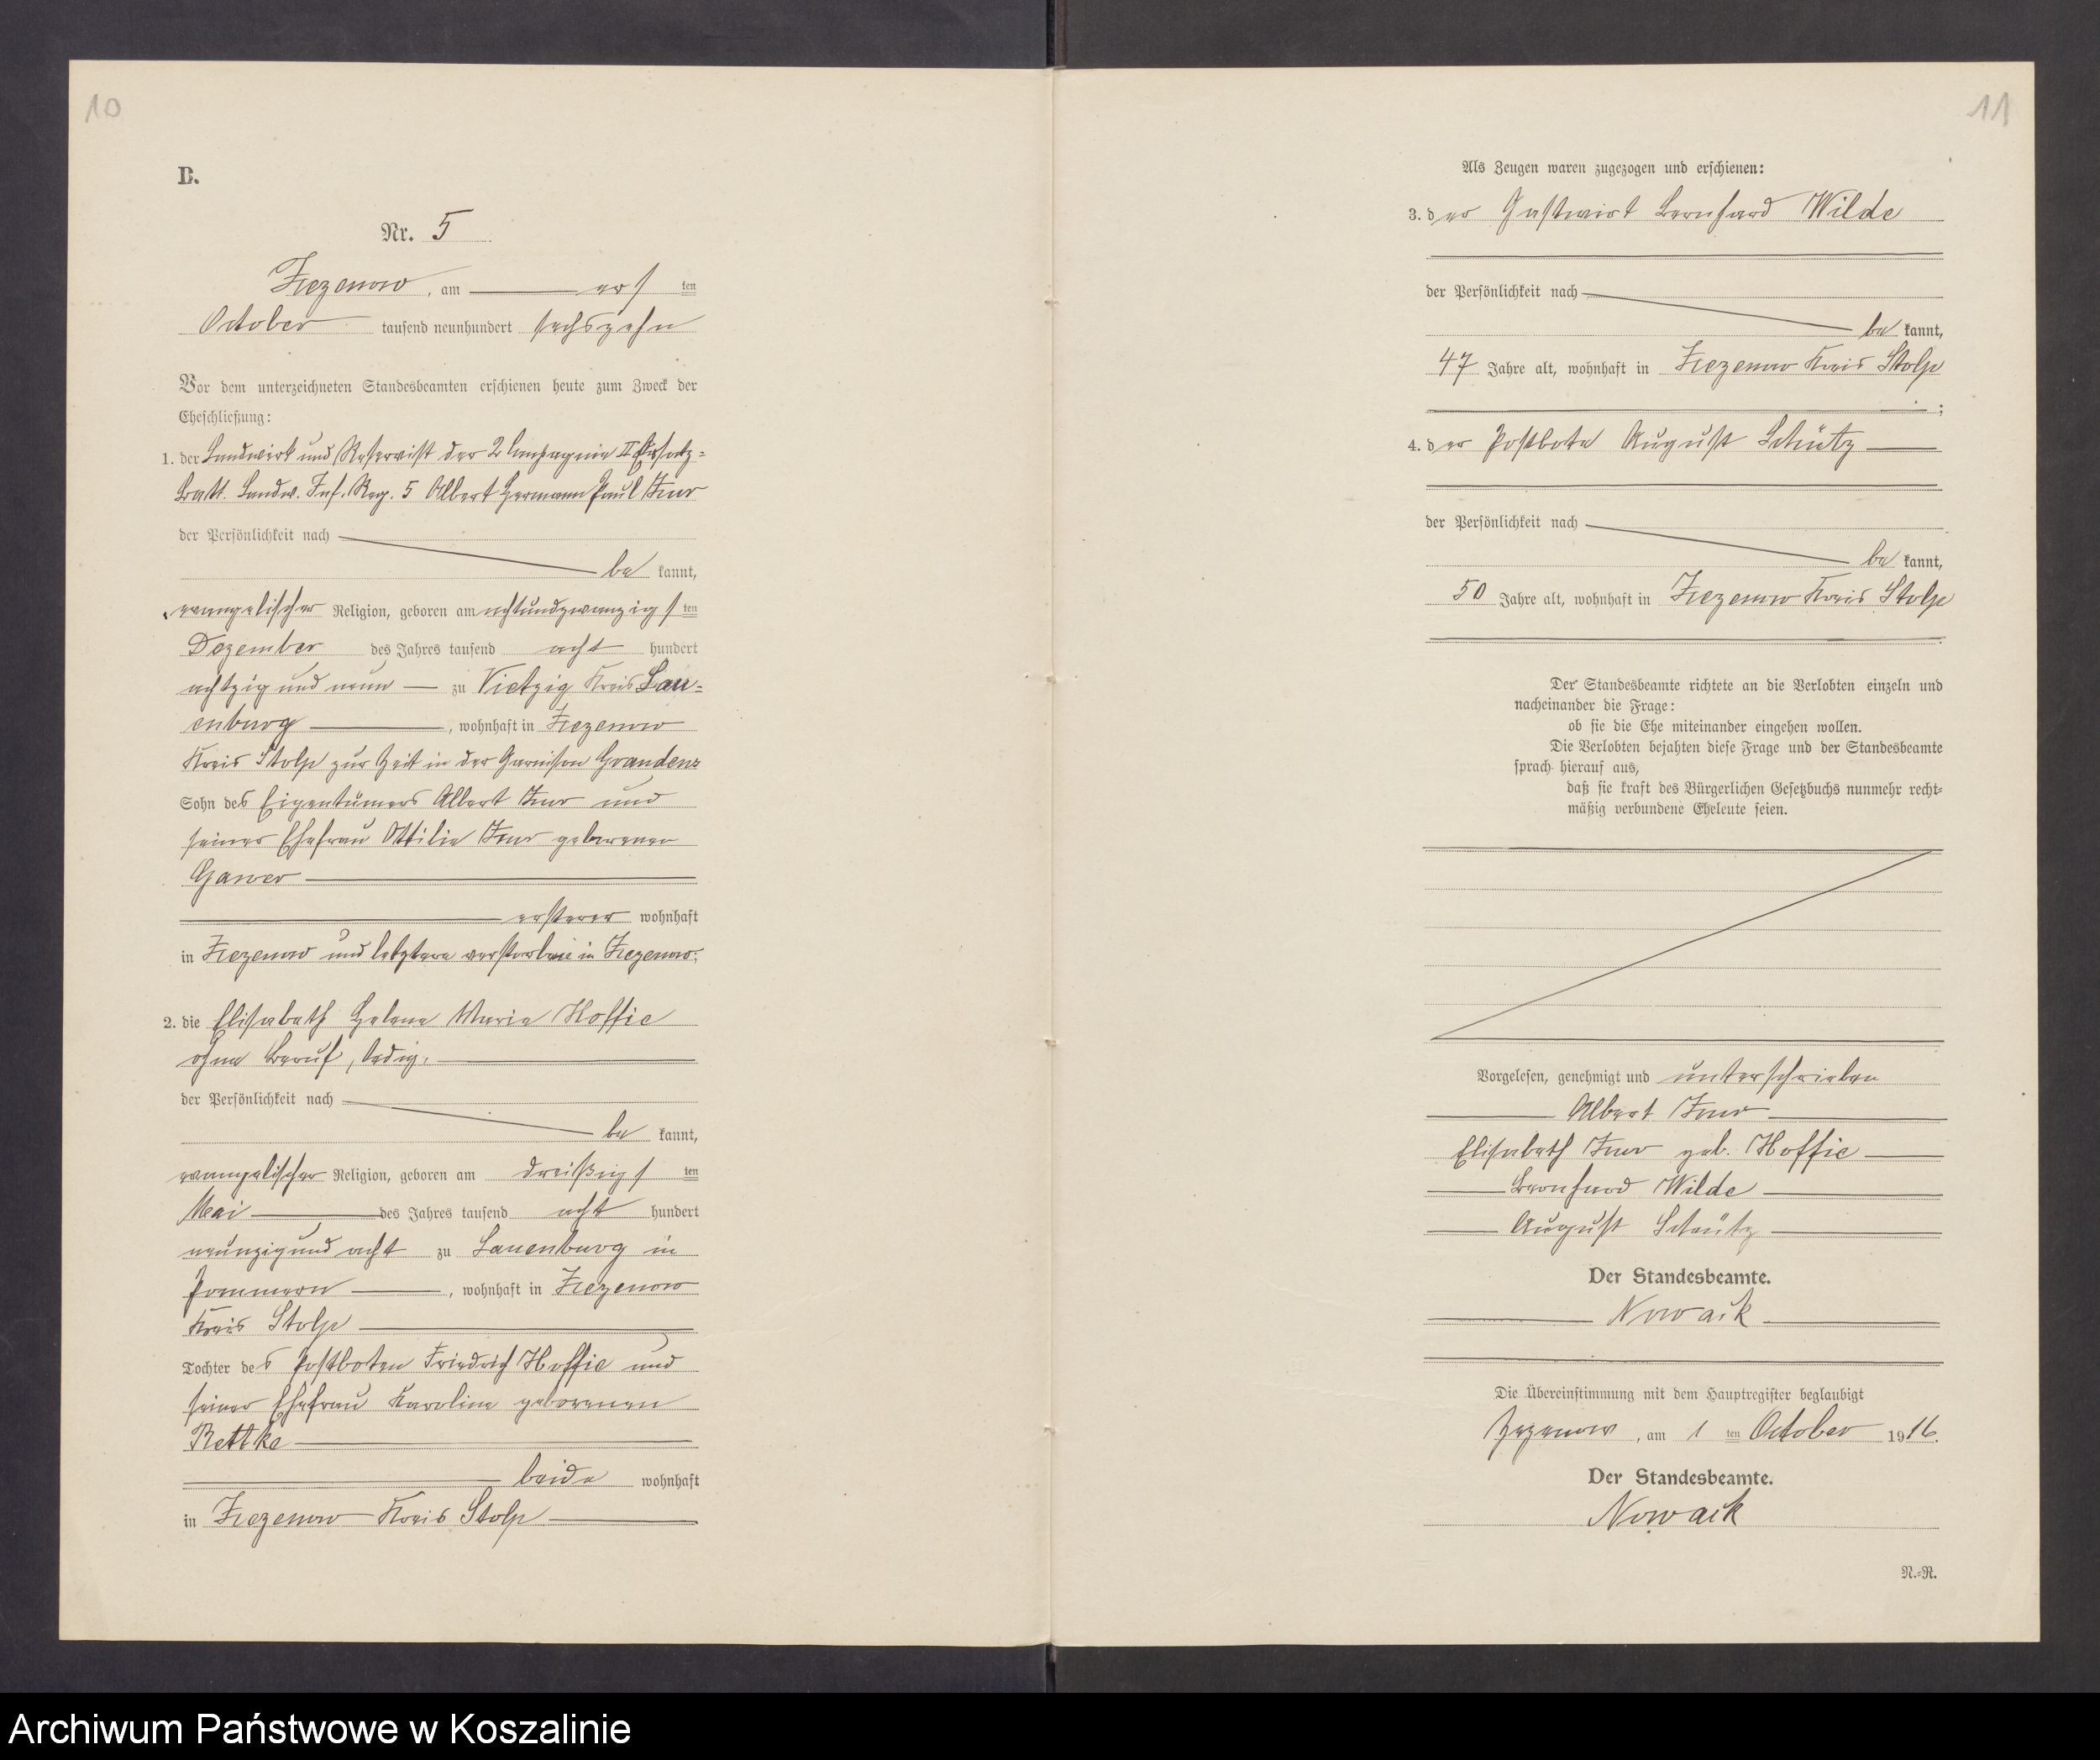 10
B.
Nr. 5
Zezenow, am ersten
October tausend neunhundert sechszehn
Vor dem unterzeichneten Standesbeamten erschienen heute zum Zweck der
Eheschließung:
1. der Landwirt und Reservist der 2 Companie II Ersatz-
Batt. Landw. Inf. Reg. 5 Albert Hermann Paul
der Persönlichkeit nach
bekannt,
evangelischer Religion, geboren am achtundzwanzigsten
Dezember des Jahres tausend acht hundert
achtzig und neun zu Vietzig Kreis Lau-
enburg, wohnhaft in Zezenow
Kreis Stolp zur Zeit in der Garnison Graudenz
Sohn des Eigentümers Albert und
seiner Ehefrau Ottilie geborenen
Gawer
ersterer wohnhaft
in Zezenow und letztere verstorben in Zezenow;
2. die Elisabeth Helene Marie Hoffie
ohne Beruf, ledig,
der Persönlichkeit nach
bekannt,
evangelischer Religion, geboren am dreißigsten
Mai des Jahres tausend acht hundert
neunzig und acht zu Lauenburg in
Pommern, wohnhaft in Zezenow
Kreis Stolp
Tochter des Postboten Friedrich Hoffie und
seiner Ehefrau Karoline geborenen
Rettke
beide wohnhaft
in Zezenow Kreis Stolp
11
Als Zeugen waren zugezogen und erschienen:
3. der Gastwirt Bernhard Wilde
der Persönlichkeit nach
bekannt,
47 Jahre alt, wohnhaft in Zezenow Kreis Stolp
;
4. der Postbote August Schütz
der Persönlichkeit nach
bekannt,
50 Jahre alt, wohnhaft in Zezenow Kreis Stolp
Der Standesbeamte richtete an die Verlobten einzeln und
nacheinander die Frage:
ob sie die Ehe miteinander eingehen wollen.
Die Verlobten bejahten diese Frage und der Standesbeamte
sprach hierauf aus,
daß sie kraft des Bürgerlichen Gesetzbuchs nunmehr recht-
mäßig verbundene Eheleute seien.
Vorgelesen, genehmigt und unterschrieben
Albert
Elisabeth geb. Hoffie
Bernhard Wilde
August Schütz
Der Standesbeamte.
Nowack
Die Übereinstimmung mit dem Hauptregister beglaubigt
Zezenow, am 1 ten October 1916.
Der Standesbeamte.
Nowack
N.-R.
Archiwum Państwowe w Koszalinie